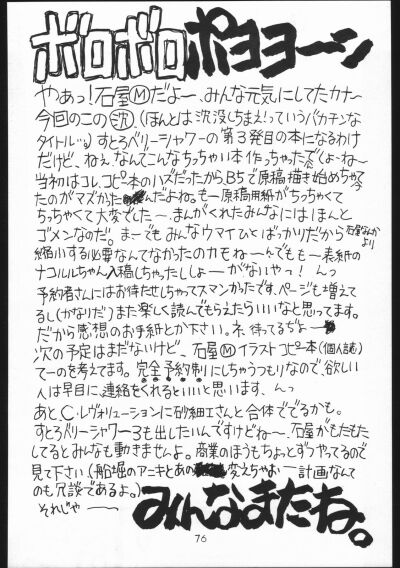 ボロボロポヨヨーン
やぁっ!石屋Ⓜだよー、みんな元気にしてたカナ〜
今回のこの㊈、(ほんとは沈没しちまえ!っていうバカチンな
タイトル) すとろべりーシャワーの第3発目の本になるわけ
だけど、ねぇ、なんでこんなちっちゃい本作っちゃったでくよーね〜
当初はコレ、コピー本のハズだったから、B5で原稿描き始めちゃっ
たのがマズかったんだよね。もー原稿用紙がちっちゃくて
ちっちゃくて大変でした〜。まんがくれたみんなにはほんと
ゴメンなのだ。まーでもみんなウマイひとばっかりだから石屋なんかより
縮小する必要なんてなかったのカモねーんでもも一表紙の
ナコルルちゃん入稿しちゃったししょーがないやっ!んっ
予約者さんにはお待たせしちゃってスマンかったです、ページも増えて
るし(かなりだ)また楽しく読んでもらえたらいいなと思ってます。
だから感想のお手紙とか下さい。ネ、待ってるぢょー
次の予定はまだないけど、石屋Ⓜイラストコピー本(個人誌)
てーのを考えてます。完全予約制にしちゃうつもりなので、欲しい
人は早目に、連絡をくれるといいと思います、んっ
あとC・レヴォリューションに砂細工さんと合体ででるかも。
すとろべりーシャワー3も出したいんですけどね〜、石屋がもたもた
してるとみんなも動きませんよ。商業のほうもちょっとずつやってるので
見て下さい(船堀のアーキとあの変えちゃおー計画なんて
のも冗談であるよ。)
それじゃー みんなまたね。
76